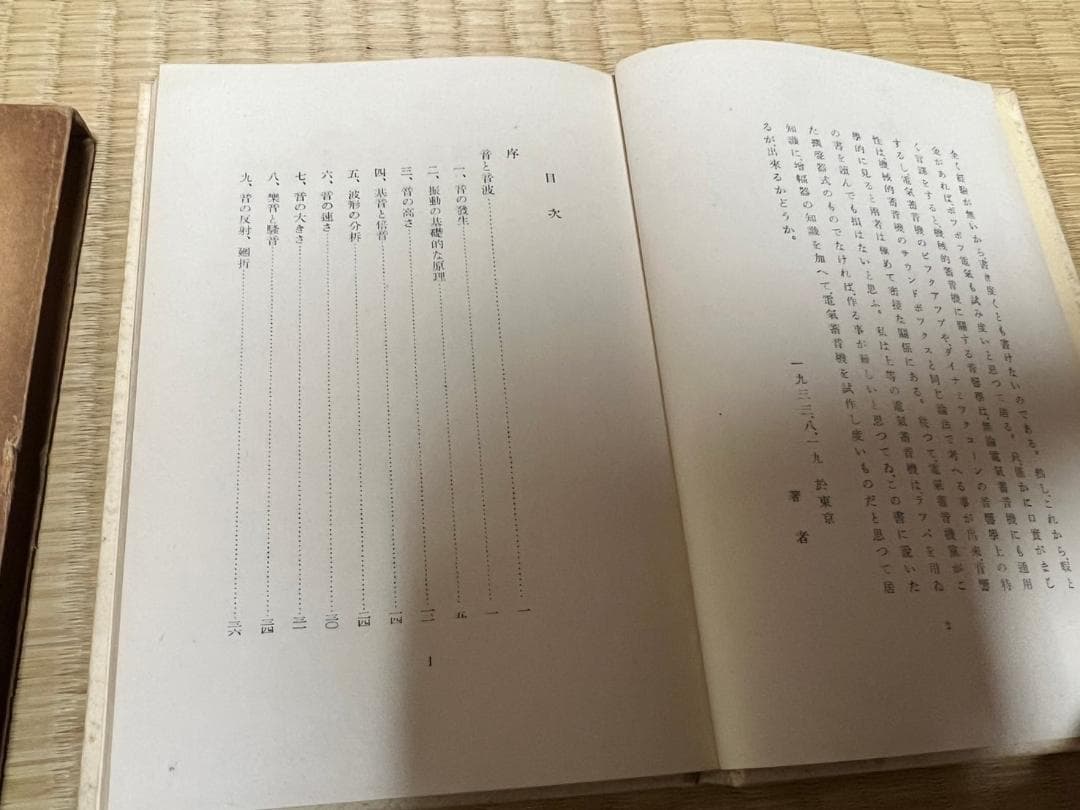 全く經驗が無いから書き度くとも書けないのである。然し、これから、暇と
金があれば、ボツボツ電氣も試み度いと思つて居る。
く言譯をすると機械的蓄音機に關する音響學は、無論電氣蓄音機にも通用
するし電氣蓄音機のピックアップや、ダイナミックコーンの音響學上の特
性は機械的蓄音機のサウンドボックスと同じ論法で考へる事が出來、音響
學的に見ると兩者は極めて密接な關係にある。從つて電氣蓄音機黨がこ
の書を讀んでも損はないと思ふ。私は上等の電氣蓄音機は、ラッパを用ゐ
た擴聲器式のものでなければ、作る事が難しいと思つてゐ、この書に說いた
知識に、增幅器の知識を加へて、電氣蓄音機を試作し度いものだと思つて居
るが、出來るかどうか。
一九三三、八、一九 於東京
著者
2
目次
序 一
音と音波 一
一、音の發生 五
二、振動の基礎的な原理 一二
三、音の高さ 一四
四、基音と倍音 二四
五、波形の分析 三〇
六、音の速さ 三二
七、音の大きさ 三四
八、樂音と騷音 三六
九、音の反射、廻折
1